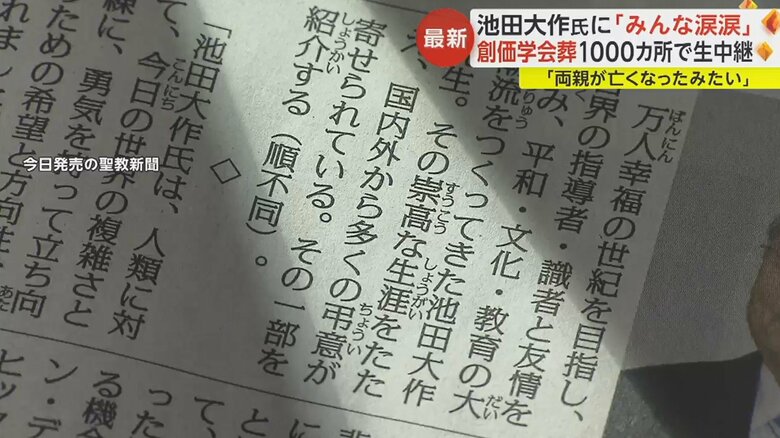 最新
池田大作氏に「みんな涙涙」
創価学会葬1000カ所で生中継
「両親が亡くなったみたい」
今日発売の聖教新聞
万人幸福の世紀を目指し、
界の指導者・識者と友情を
み、平和・文化・教育の大
流をつくってきた池田大作
生。その崇高な生涯をたた
え、国内外から多くの弔意が
寄せられている。その一部を
紹介する（順不同）。
◇
「池田大作氏は、人類に対
て、今日の世界の複雑さと
練に、勇気を持って立ち向
ための希望と方向性
れまし
る機会
った